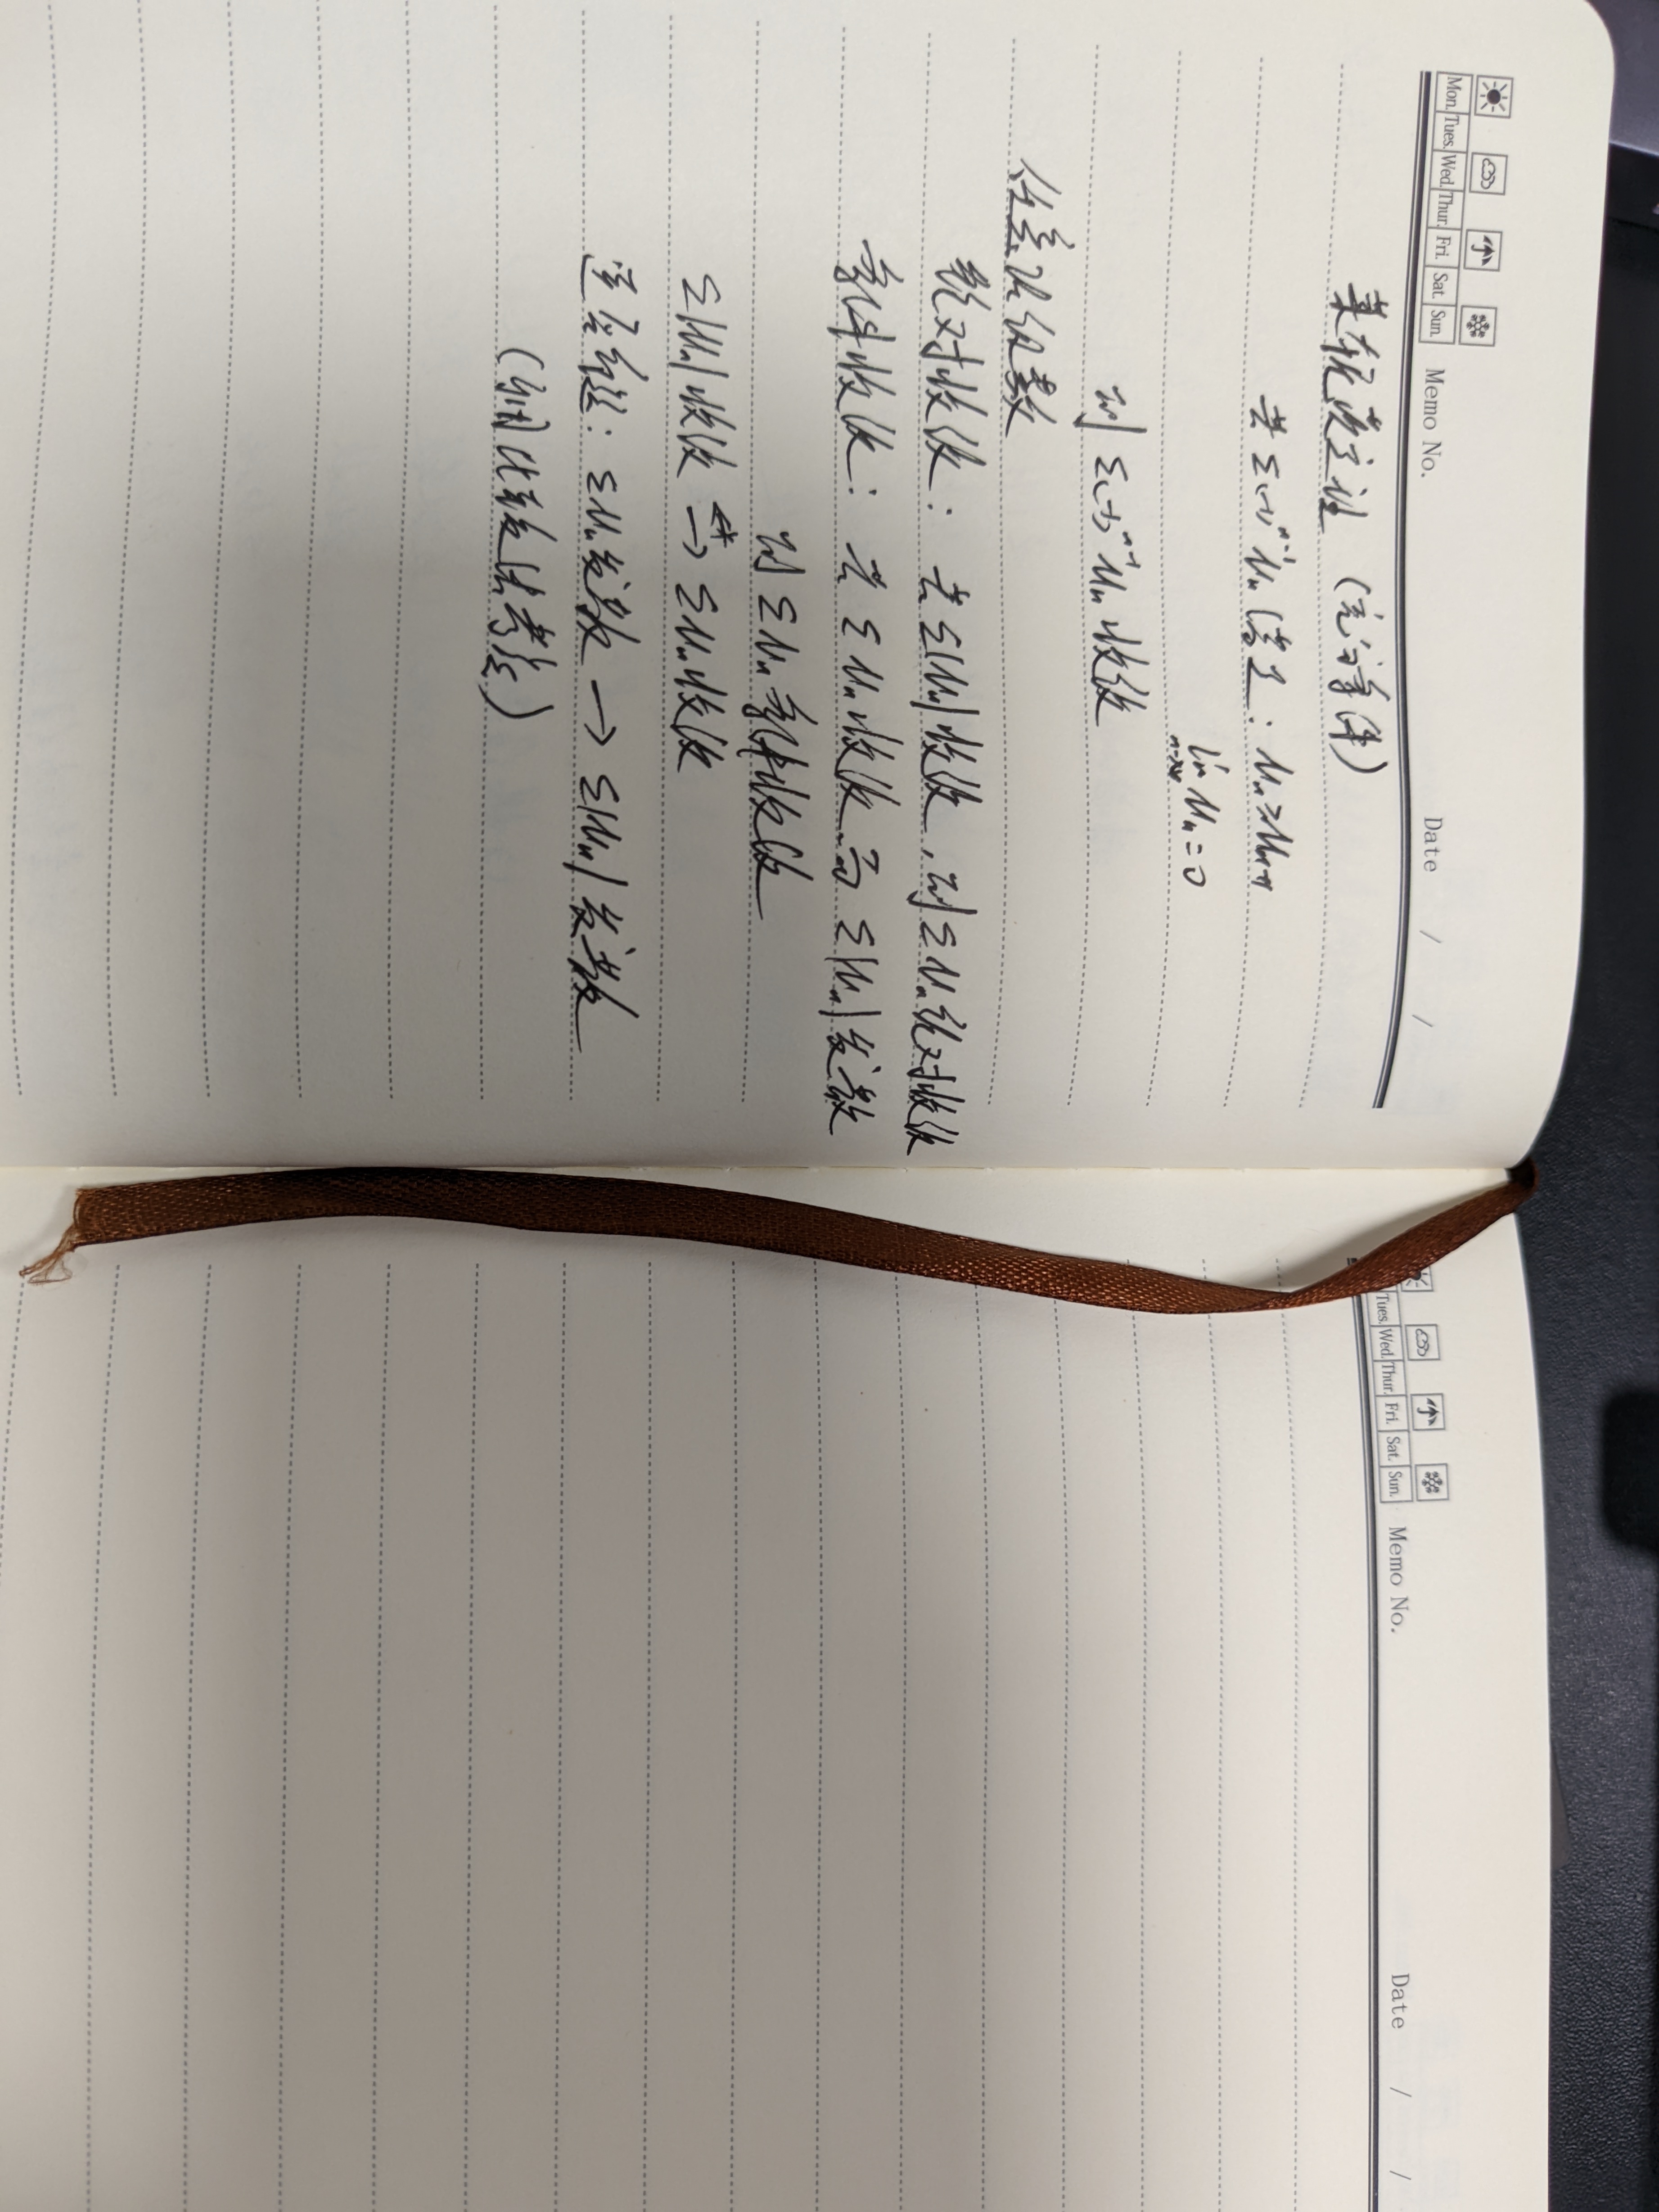 Mon. Tues. Wed. Thur. Fri. Sat. Sun. Memo No. Date / /
莱布尼茨定理 (充分条件)
若 Σ(-1)ⁿ⁻¹ uₙ 满足: uₙ ≥ uₙ₊₁
lim n→∞ uₙ = 0
则 Σ(-1)ⁿ⁻¹ uₙ 收敛
任意项级数
绝对收敛: 若 Σ|uₙ| 收敛, 则 Σuₙ 绝对收敛
条件收敛: 若 Σuₙ 收敛而 Σ|uₙ| 发散
则 Σuₙ 条件收敛
Σ|uₙ| 收敛 → Σuₙ 收敛
逆否命题: Σuₙ 发散 → Σ|uₙ| 发散
(别用比较法考察)
Tues. Wed. Thur. Fri. Sat. Sun. Memo No. Date / /